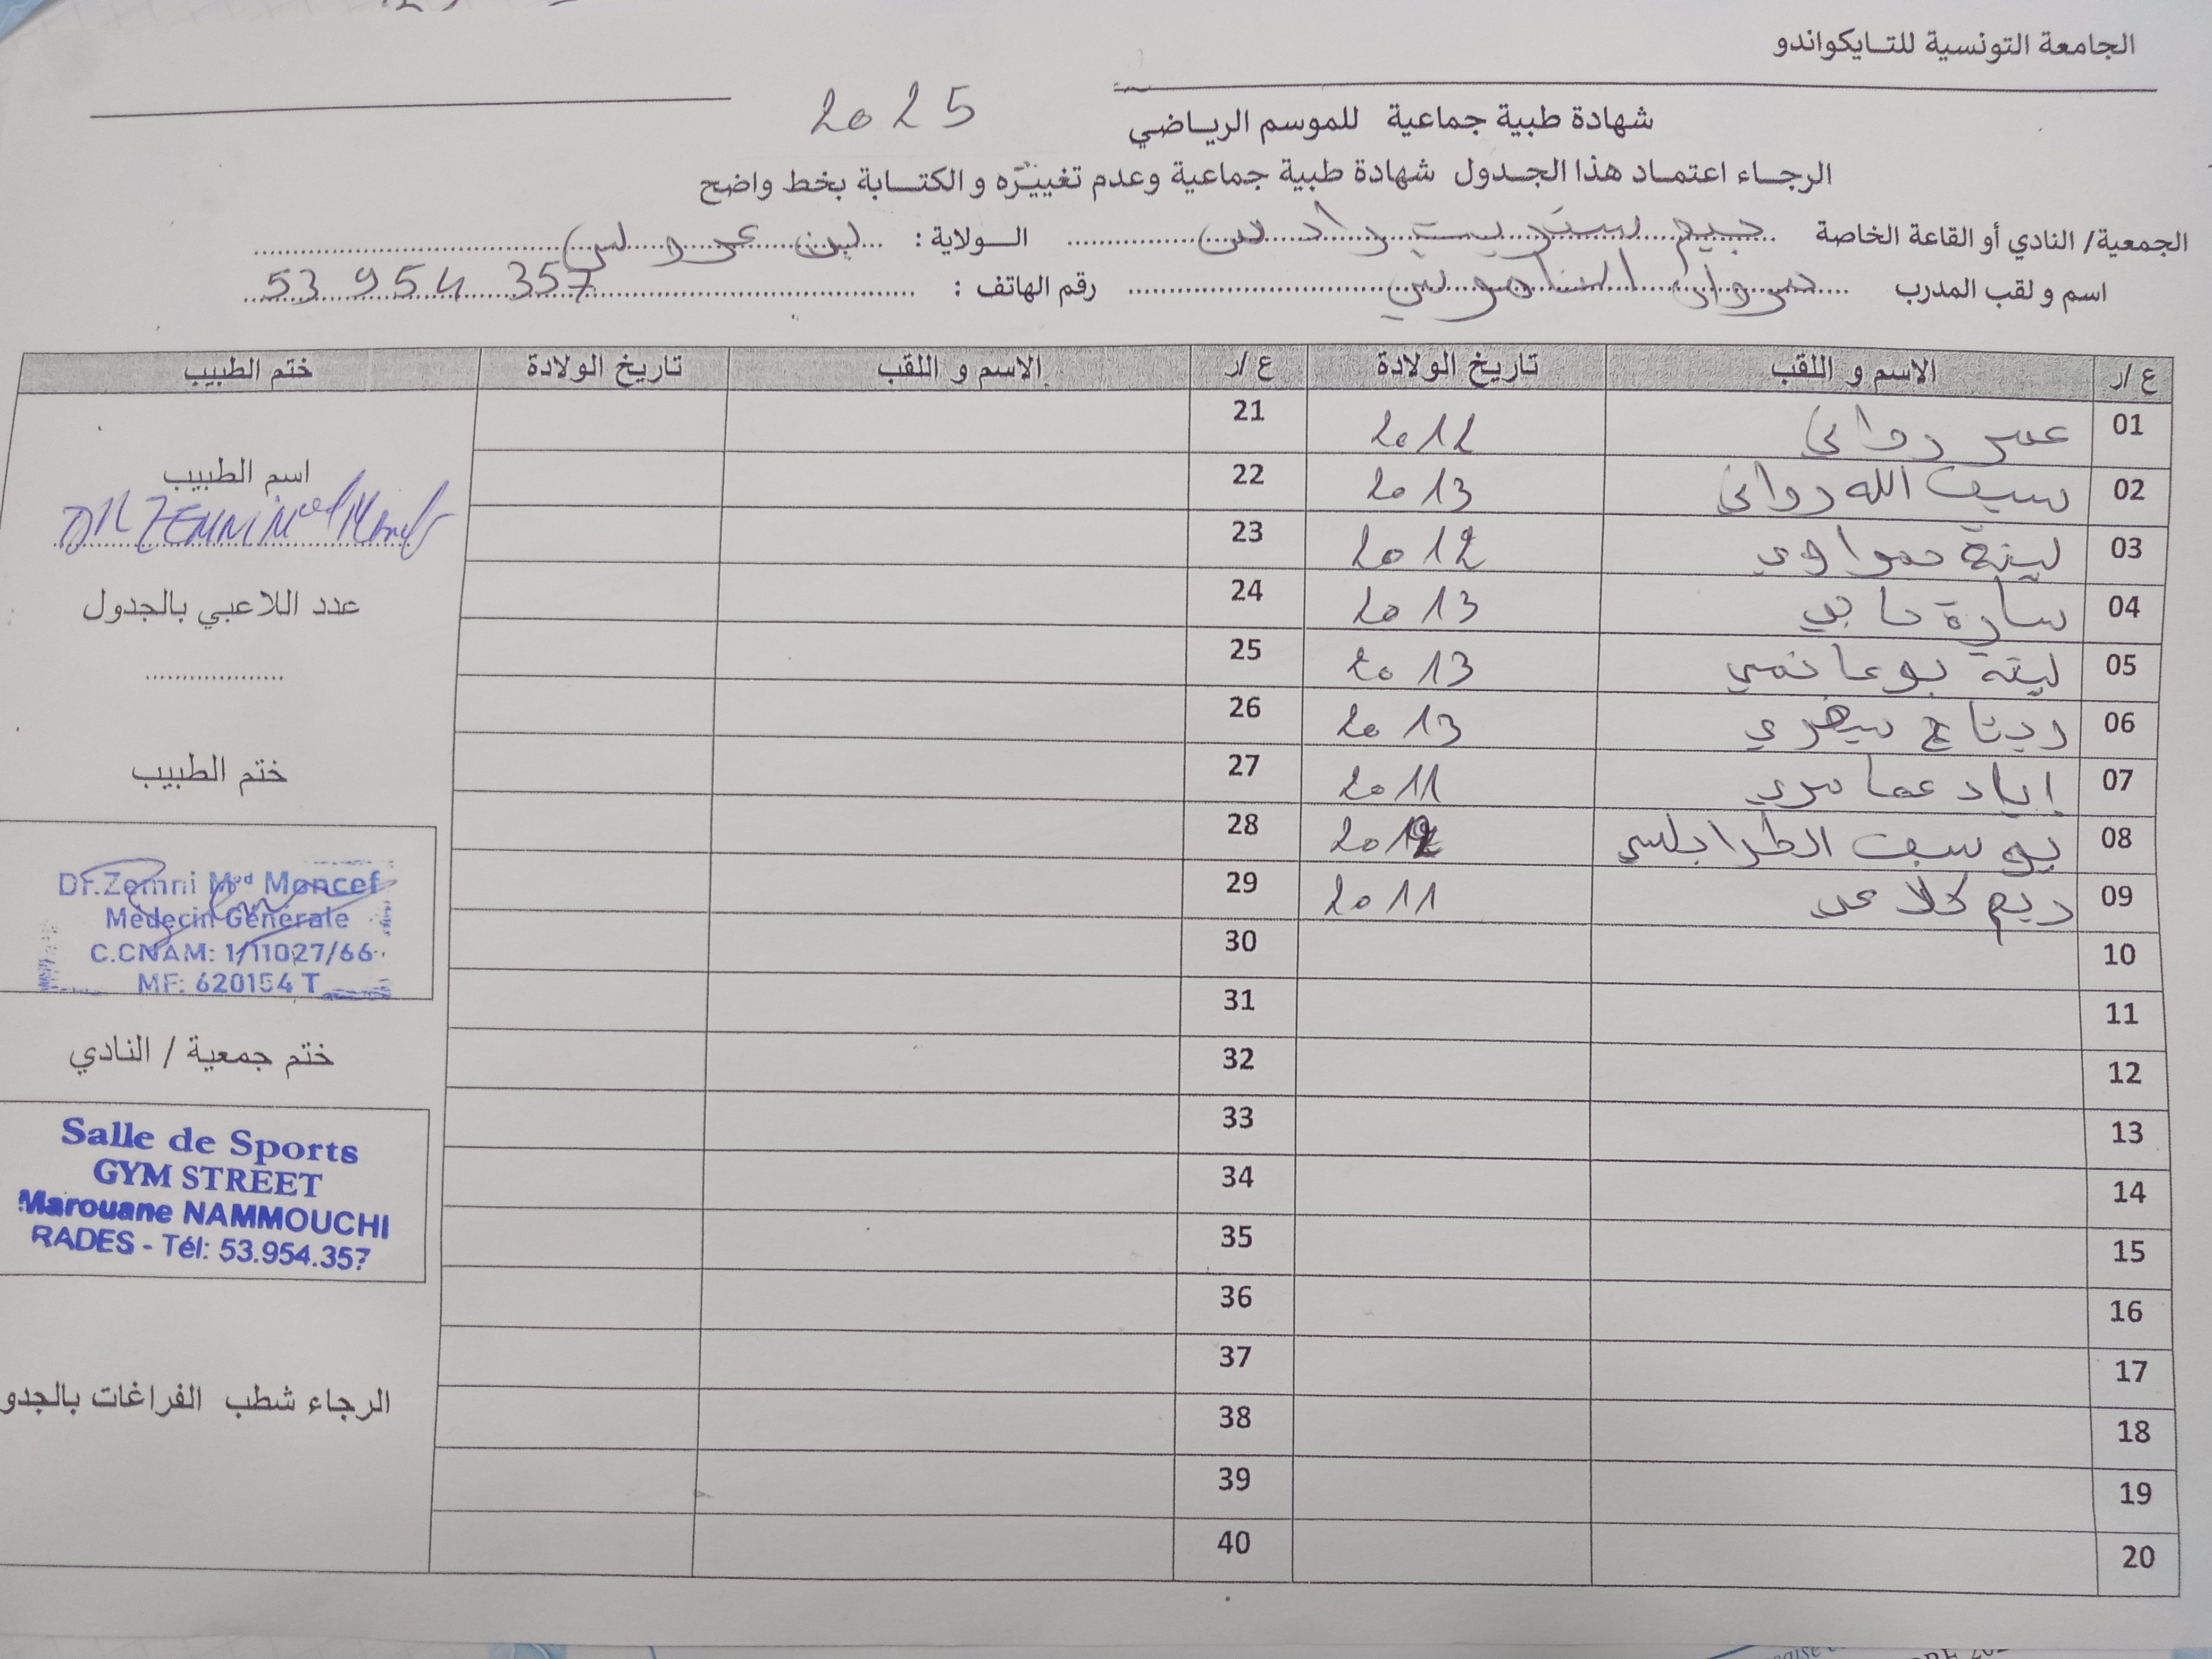 الجامعة التونسية للتايكواندو
شهادة طبية جماعية للموسم الرياضي 2025
الرجاء اعتماد هذا الجدول شهادة طبية جماعية وعدم تغييره و الكتابة بخط واضح
الجمعية/ النادي أو القاعة الخاصة جيم ستريت رادس الولاية : بن عروس
اسم و لقب المدرب مروان النموشي رقم الهاتف : 53 954 357
ع /ر الاسم و اللقب تاريخ الولادة ع /ر الاسم و اللقب تاريخ الولادة ختم الطبيب
01 عمر رواني 2012 21
02 سيف الله رواني 2013 22
03 لينة 2012 23
04 سارة حاجي 2013 24
05 لينة بوغانمي 2013 25
06 ريتاج 2013 26
07 إياد عامري 2011 27
08 يوسف الطرابلسي 2012 28
09 ريم كلاعي 2011 29
10 30
11 31
12 32
13 33
14 34
15 35
16 36
17 37
18 38
19 39
20 40
اسم الطبيب
DR ZEMNI Med Moncef
عدد اللاعبي بالجدول
ختم الطبيب
Dr.Zemni Med Moncef
Médecin Générale
C.CNAM: 1/11027/66
MF: 620154 T
ختم جمعية / النادي
Salle de Sports
GYM STREET
Marouane NAMMOUCHI
RADES - Tél: 53.954.357
الرجاء شطب الفراغات بالجدو